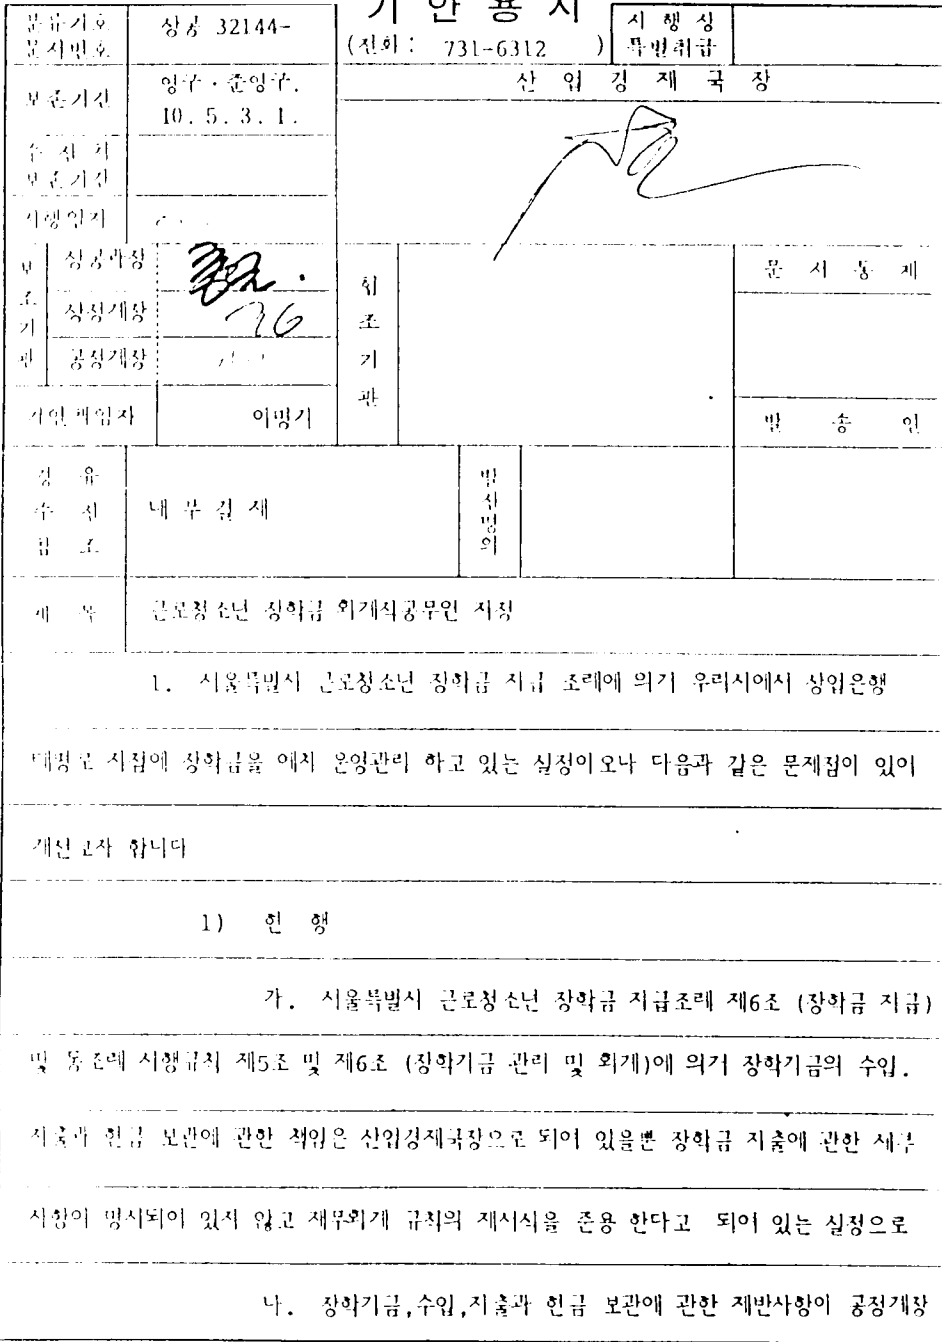 기 안 용 지
분류기호
문서번호
상공 32144-
(전화 : 731-6312 )
시 행 상
특별취급
보존기간
영구 · 준영구.
10. 5. 3. 1.
산 업 경 제 국 장
수 신 처
보존기간
시행일자
보 조 기 관
상공과장
상정계장
공정계장
협 조 기 관
문 서 통 제
기안책임자
이명기
발 송 인
경 유
수 신
참 조
내 부 결 재
발신명의
제 목
근로청소년 장학금 회계직공무원 지정
1. 서울특별시 근로청소년 장학금 지급 조례에 의거 우리시에서 상업은행
태평로 지점에 장학금을 예치 운영관리 하고 있는 실정이오나 다음과 같은 문제점이 있어
개선코자 합니다
1) 현 행
가. 서울특별시 근로청소년 장학금 지급조례 제6조 (장학금 지급)
및 동조례 시행규칙 제5조 및 제6조 (장학기금 관리 및 회계)에 의거 장학기금의 수입.
지출과 현금 보관에 관한 책임은 산업경제국장으로 되어 있을뿐 장학금 지출에 관한 세부
사항이 명시되어 있지 않고 재무회계 규칙의 제서식을 준용 한다고 되어 있는 실정으로
나. 장학기금,수입,지출과 현금 보관에 관한 제반사항이 공정계장